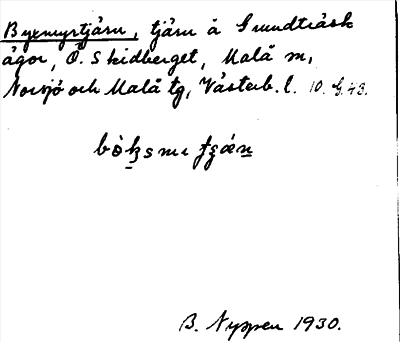 Byxmyrtjärn, tjärn å Grundträsk
ägor, Ö. Skidberget, Malå m,
Norsjö och Malå tg, Västerb. l. 10. G. 48.
B. Nyppen 1930.